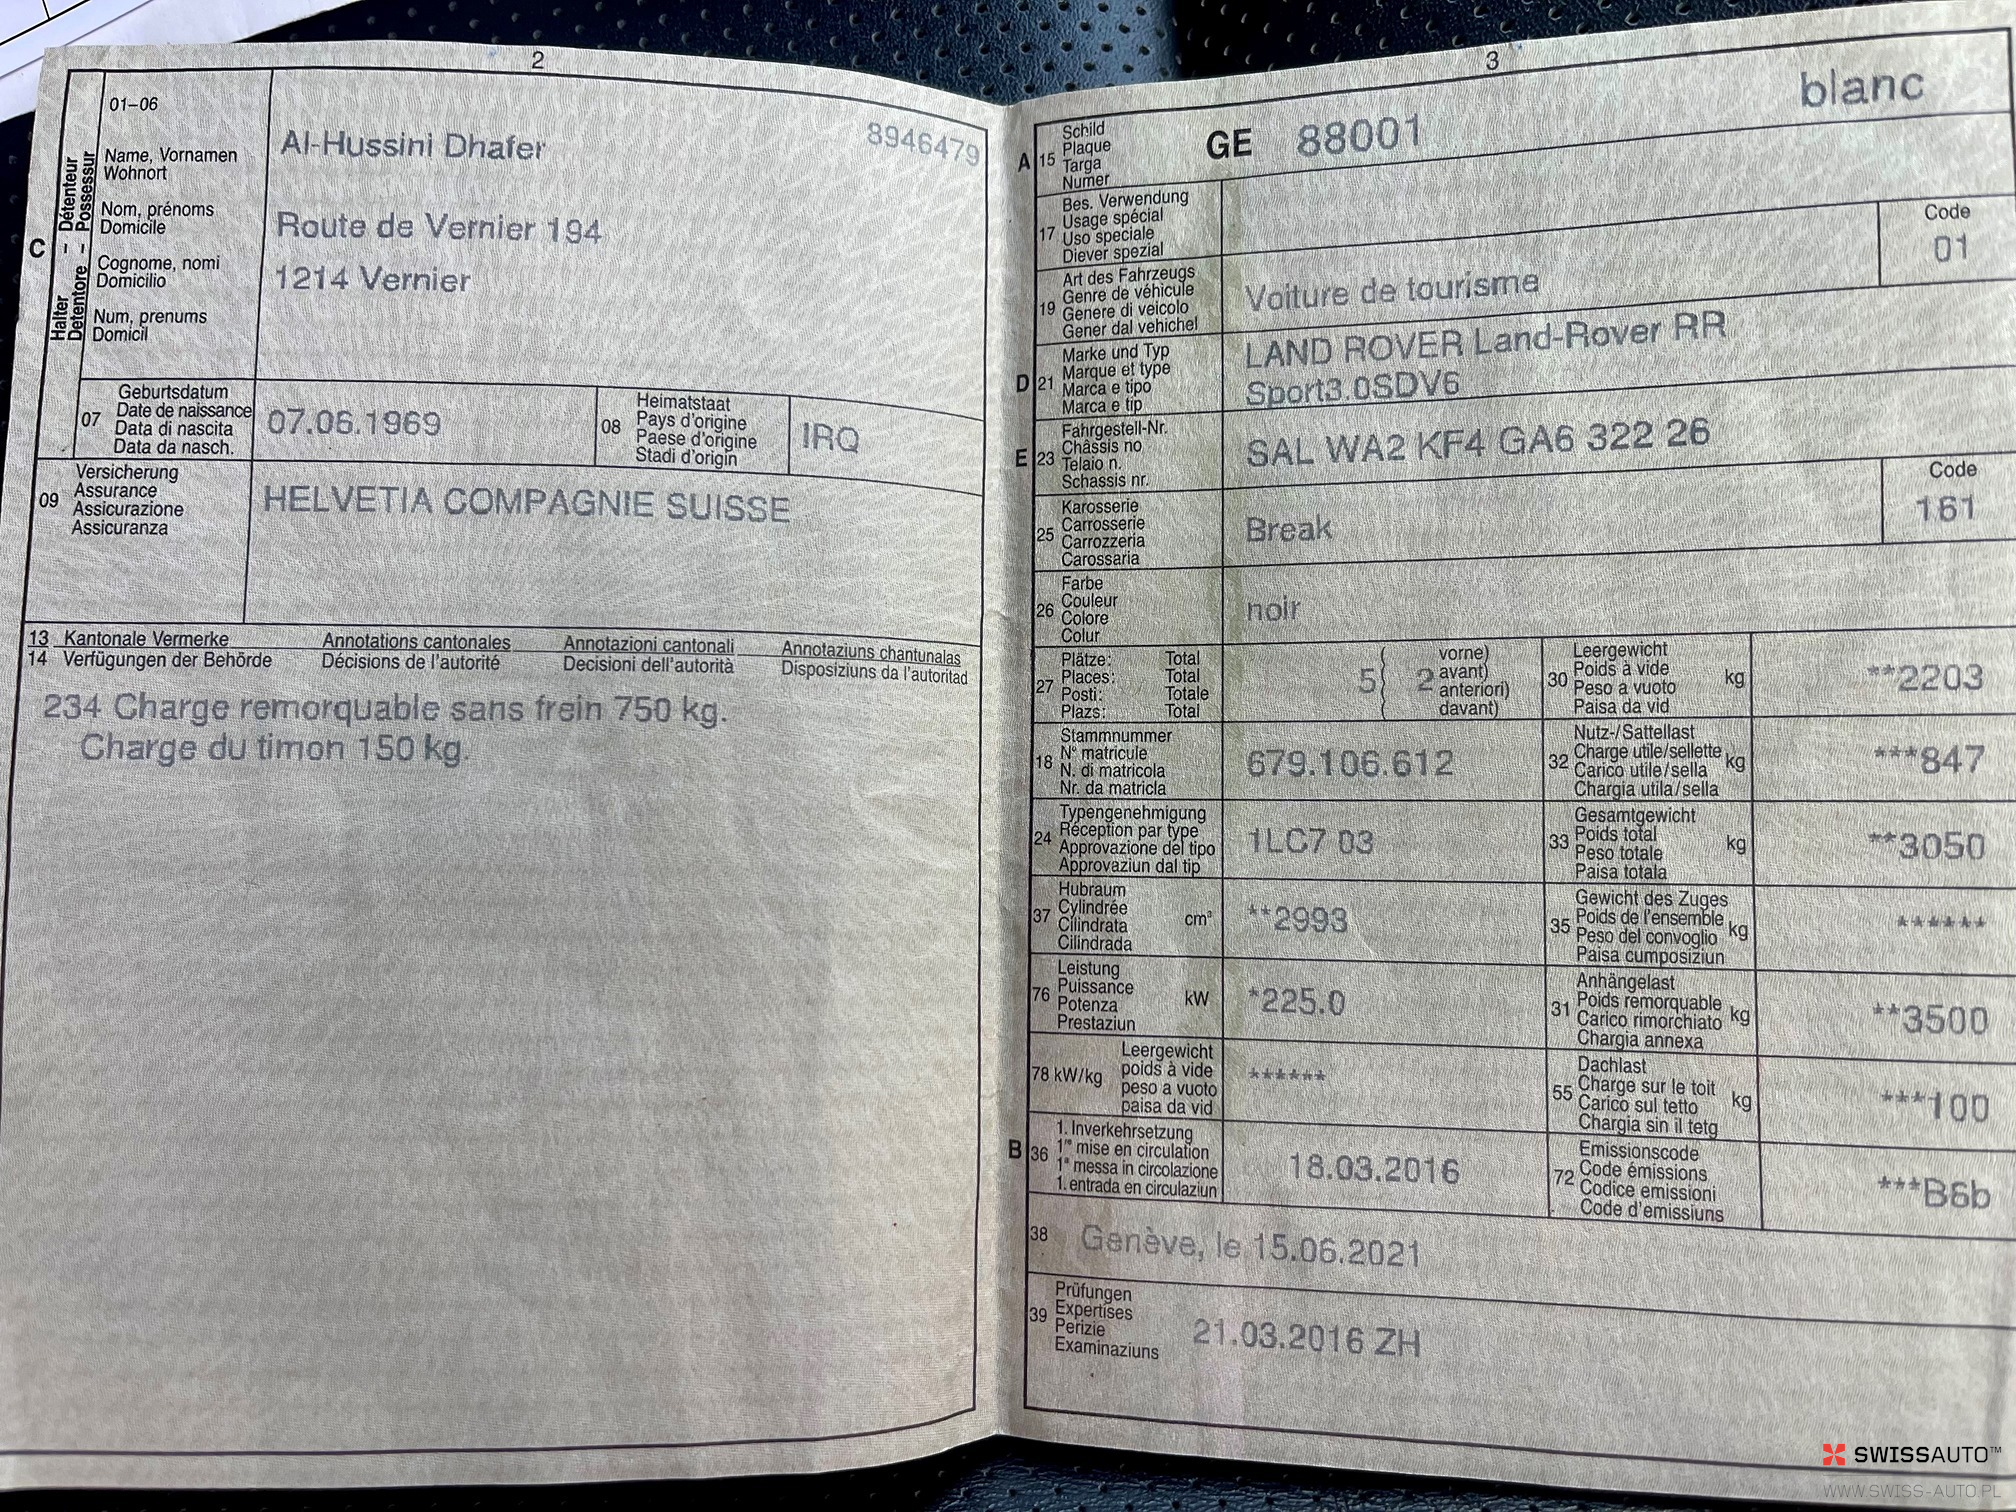 2
01–06
Name, Vornamen
Wohnort
Nom, prénoms
Domicile
Cognome, nomi
Domicilio
Num, prenums
Domicil
C
Halter – Détenteur
Detentore – Possessur
Al-Hussini Dhafer
8946479
Route de Vernier 194
1214 Vernier
07
Geburtsdatum
Date de naissance
Data di nascita
Data da nasch.
07.06.1969
08
Heimatstaat
Pays d'origine
Paese d'origine
Stadi d'origin
IRQ
09
Versicherung
Assurance
Assicurazione
Assicuranza
HELVETIA COMPAGNIE SUISSE
13 Kantonale Vermerke Annotations cantonales Annotazioni cantonali Annotaziuns chantunalas
14 Verfügungen der Behörde Décisions de l'autorité Decisioni dell'autorità Disposiziuns da l'autoritad
234 Charge remorquable sans frein 750 kg.
Charge du timon 150 kg.
3
A 15
Schild
Plaque
Targa
Numer
GE 88001
blanc
17
Bes. Verwendung
Usage spécial
Uso speciale
Diever spezial
19
Art des Fahrzeugs
Genre de véhicule
Genere di veicolo
Gener dal vehichel
Voiture de tourisme
Code
01
D 21
Marke und Typ
Marque et type
Marca e tipo
Marca e tip
LAND ROVER Land-Rover RR
Sport3.0SDV6
E 23
Fahrgestell-Nr.
Châssis no
Telaio n.
Schassis nr.
SAL WA2 KF4 GA6 322 26
25
Karosserie
Carrosserie
Carrozzeria
Carossaria
Break
Code
161
26
Farbe
Couleur
Colore
Colur
noir
27
Plätze: Total
Places: Total
Posti: Totale
Plazs: Total
5 2
vorne)
avant)
anteriori)
davant)
30
Leergewicht
Poids à vide
Peso a vuoto
Paisa da vid
kg
**2203
18
Stammnummer
N° matricule
N. di matricola
Nr. da matricla
679.106.612
32
Nutz-/Sattellast
Charge utile/sellette
Carico utile/sella
Chargia utila/sella
kg
***847
24
Typengenehmigung
Réception par type
Approvazione del tipo
Approvaziun dal tip
1LC7 03
33
Gesamtgewicht
Poids total
Peso totale
Paisa totala
kg
**3050
37
Hubraum
Cylindrée
Cilindrata
Cilindrada
cm³
**2993
35
Gewicht des Zuges
Poids de l'ensemble
Peso del convoglio
Paisa cumposiziun
kg
******
76
Leistung
Puissance
Potenza
Prestaziun
kW
*225.0
31
Anhängelast
Poids remorquable
Carico rimorchiato
Chargia annexa
kg
**3500
78 kW/kg
Leergewicht
poids à vide
peso a vuoto
paisa da vid
******
55
Dachlast
Charge sur le toit
Carico sul tetto
Chargia sin il tetg
kg
***100
B 36
1. Inverkehrsetzung
1re mise en circulation
1a messa in circolazione
1. entrada en circulaziun
18.03.2016
72
Emissionscode
Code émissions
Codice emissioni
Code d'emissiuns
***B6b
38
Genève, le 15.06.2021
39
Prüfungen
Expertises
Perizie
Examinaziuns
21.03.2016 ZH
SWISSAUTO™
WWW.SWISS-AUTO.PL